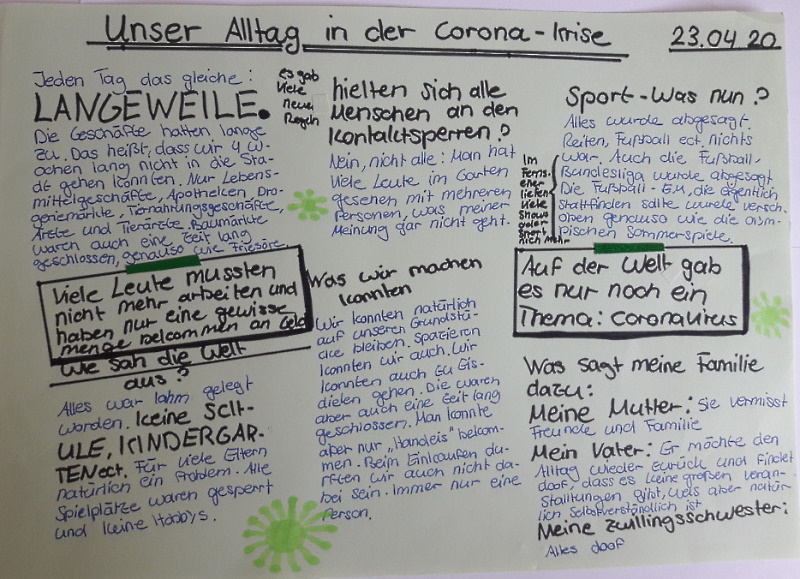 Unser Alltag in der Corona-Krise
23.04.20
Jeden Tag das gleiche:
LANGEWEILE.
Die Geschäfte hatten lange
zu. Das heißt, dass wir 4 W-
ochen lang nicht in die Sta-
dt gehen konnten. Nur Lebens-
mittelgeschäfte, Apotheken, Dro-
geriemärkte, Tiernahrungsgeschäfte,
Ärzte und Tierärzte. Baumärkte
waren auch eine Zeit lang
geschlossen, genauso wie Friseöre.
Viele Leute mussten
nicht mehr arbeiten und
haben nur eine gewisse
menge bekommen an Geld
Wie sah die Welt
aus?
Alles war lahm gelegt
worden. Keine SCH-
ULE, KINDERGAR-
TEN ect. Für viele Eltern
natürlich ein Problem. Alle
Spielplätze waren gesperrt
und keine Hobbys.
es gab
viele
neue
Regeln
hielten sich alle
Menschen an den
Kontaktsperren?
Nein, nicht alle: Man hat
viele Leute im Garten
gesehen mit mehreren
Personen, was meiner
Meinung gar nicht geht.
Was wir machen
konnten
Wir konnten natürlich
auf unseren Grundstü-
cke bleiben. Spazieren
konnten wir auch. Wir
konnten auch zu Eis-
dielen gehen. Die waren
aber auch eine Zeit lang
geschlossen. Man konnte
aber nur "Handeis" bekom-
men. Beim Einkaufen du-
rften wir auch nicht da-
bei sein. Immer nur eine
Person.
Sport-Was nun?
Alles wurde abgesagt.
Reiten, Fußball ect. nichts
war. Auch die Fußball-
Bundesliga wurde abgesagt
Die Fußball-EM, die eigentlich
Stattfinden sollte wurde versch-
oben genauso wie die olym-
pischen Sommerspiele.
Im
Ferns-
eher
liefen
viele
Shows
oder
Sport
nich mehr
Auf der Welt gab
es nur noch ein
Thema: Coronavirus
Was sagt meine Familie
dazu:
Meine Mutter: Sie vermisst
Freunde und Familie
Mein Vater: Er möchte den
Alltag wieder zurück und findet
doof, dass es keine großen veran-
staltungen gibt, was aber natür-
lich Selbstverständlich ist
Meine Zwillingsschwester:
Alles doof